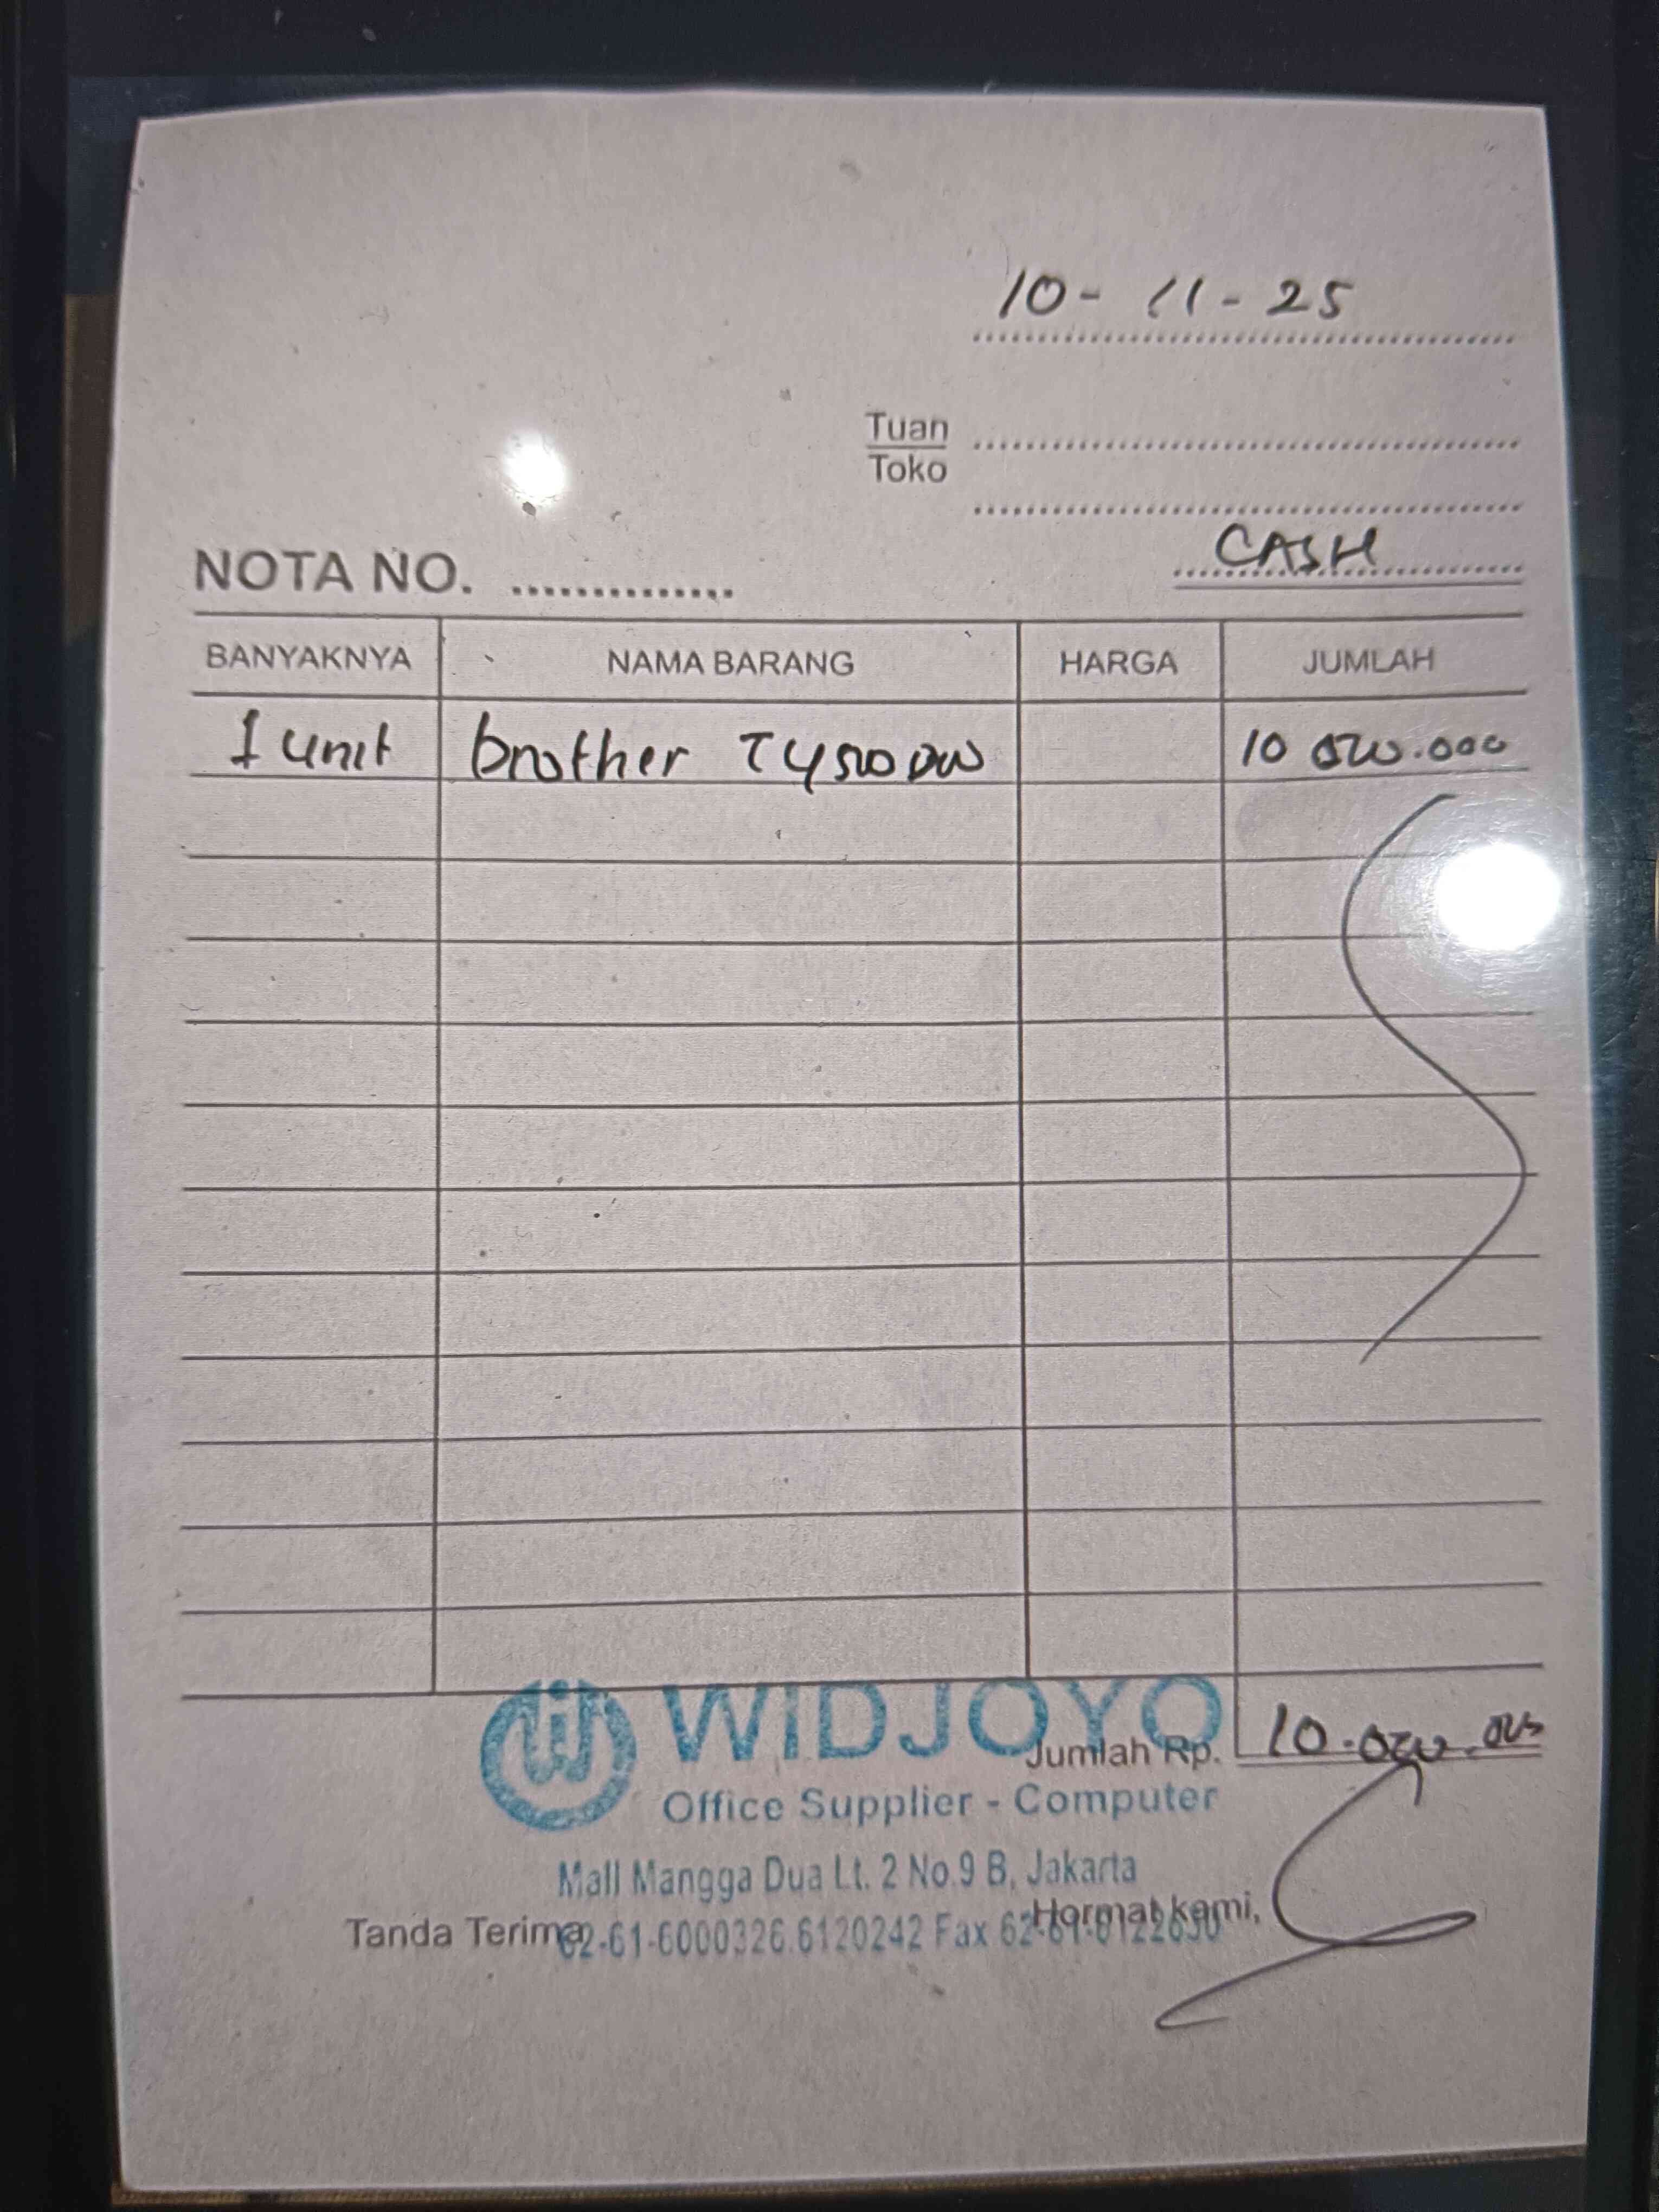 10-11-25
Tuan
Toko
CASH
NOTA NO.
BANYAKNYA NAMA BARANG HARGA JUMLAH
1 unit brother 10 .000
WIDJOYO
Jumlah Rp. 10.
Office Supplier - Computer
Mall Mangga Dua Lt. 2 No.9 B, Jakarta
Tanda Terima Hormat kami,
62-61-6000326.6120242 Fax